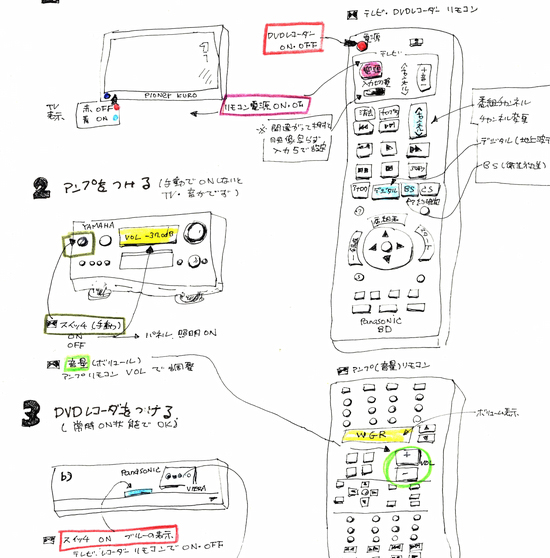 テレビ・DVDレコーダー リモコン
DVDレコーダー
ON・OFF
電源
テレビ
電源
入力切換
チャンネル
PIONEER KURO
リモコン電源 ON・OFF
TV
表示
赤 OFF
青 ON
番組チャンネル
チャンネル変更
デジタル(地上波)
BS(衛星放送)
デジタル
BS
CS
2 アンプをつける(手動でONしないと
TV・音がでず)
YAMAHA
VOL -37.0dB
スイッチ(手動)
ON
OFF
パネル 照明 ON
音量(ボリューム)
アンプリモコン VOL で調整
Panasonic
BD
アンプ(音量)リモコン
ボリューム表示
WGR
+
VOL
-
3 DVDレコーダをつける
(常時ON状態でOK)
b)
Panasonic
VIERA
スイッチ ON ブルーの表示
テレビ・レコーダー リモコンで ON・OFF